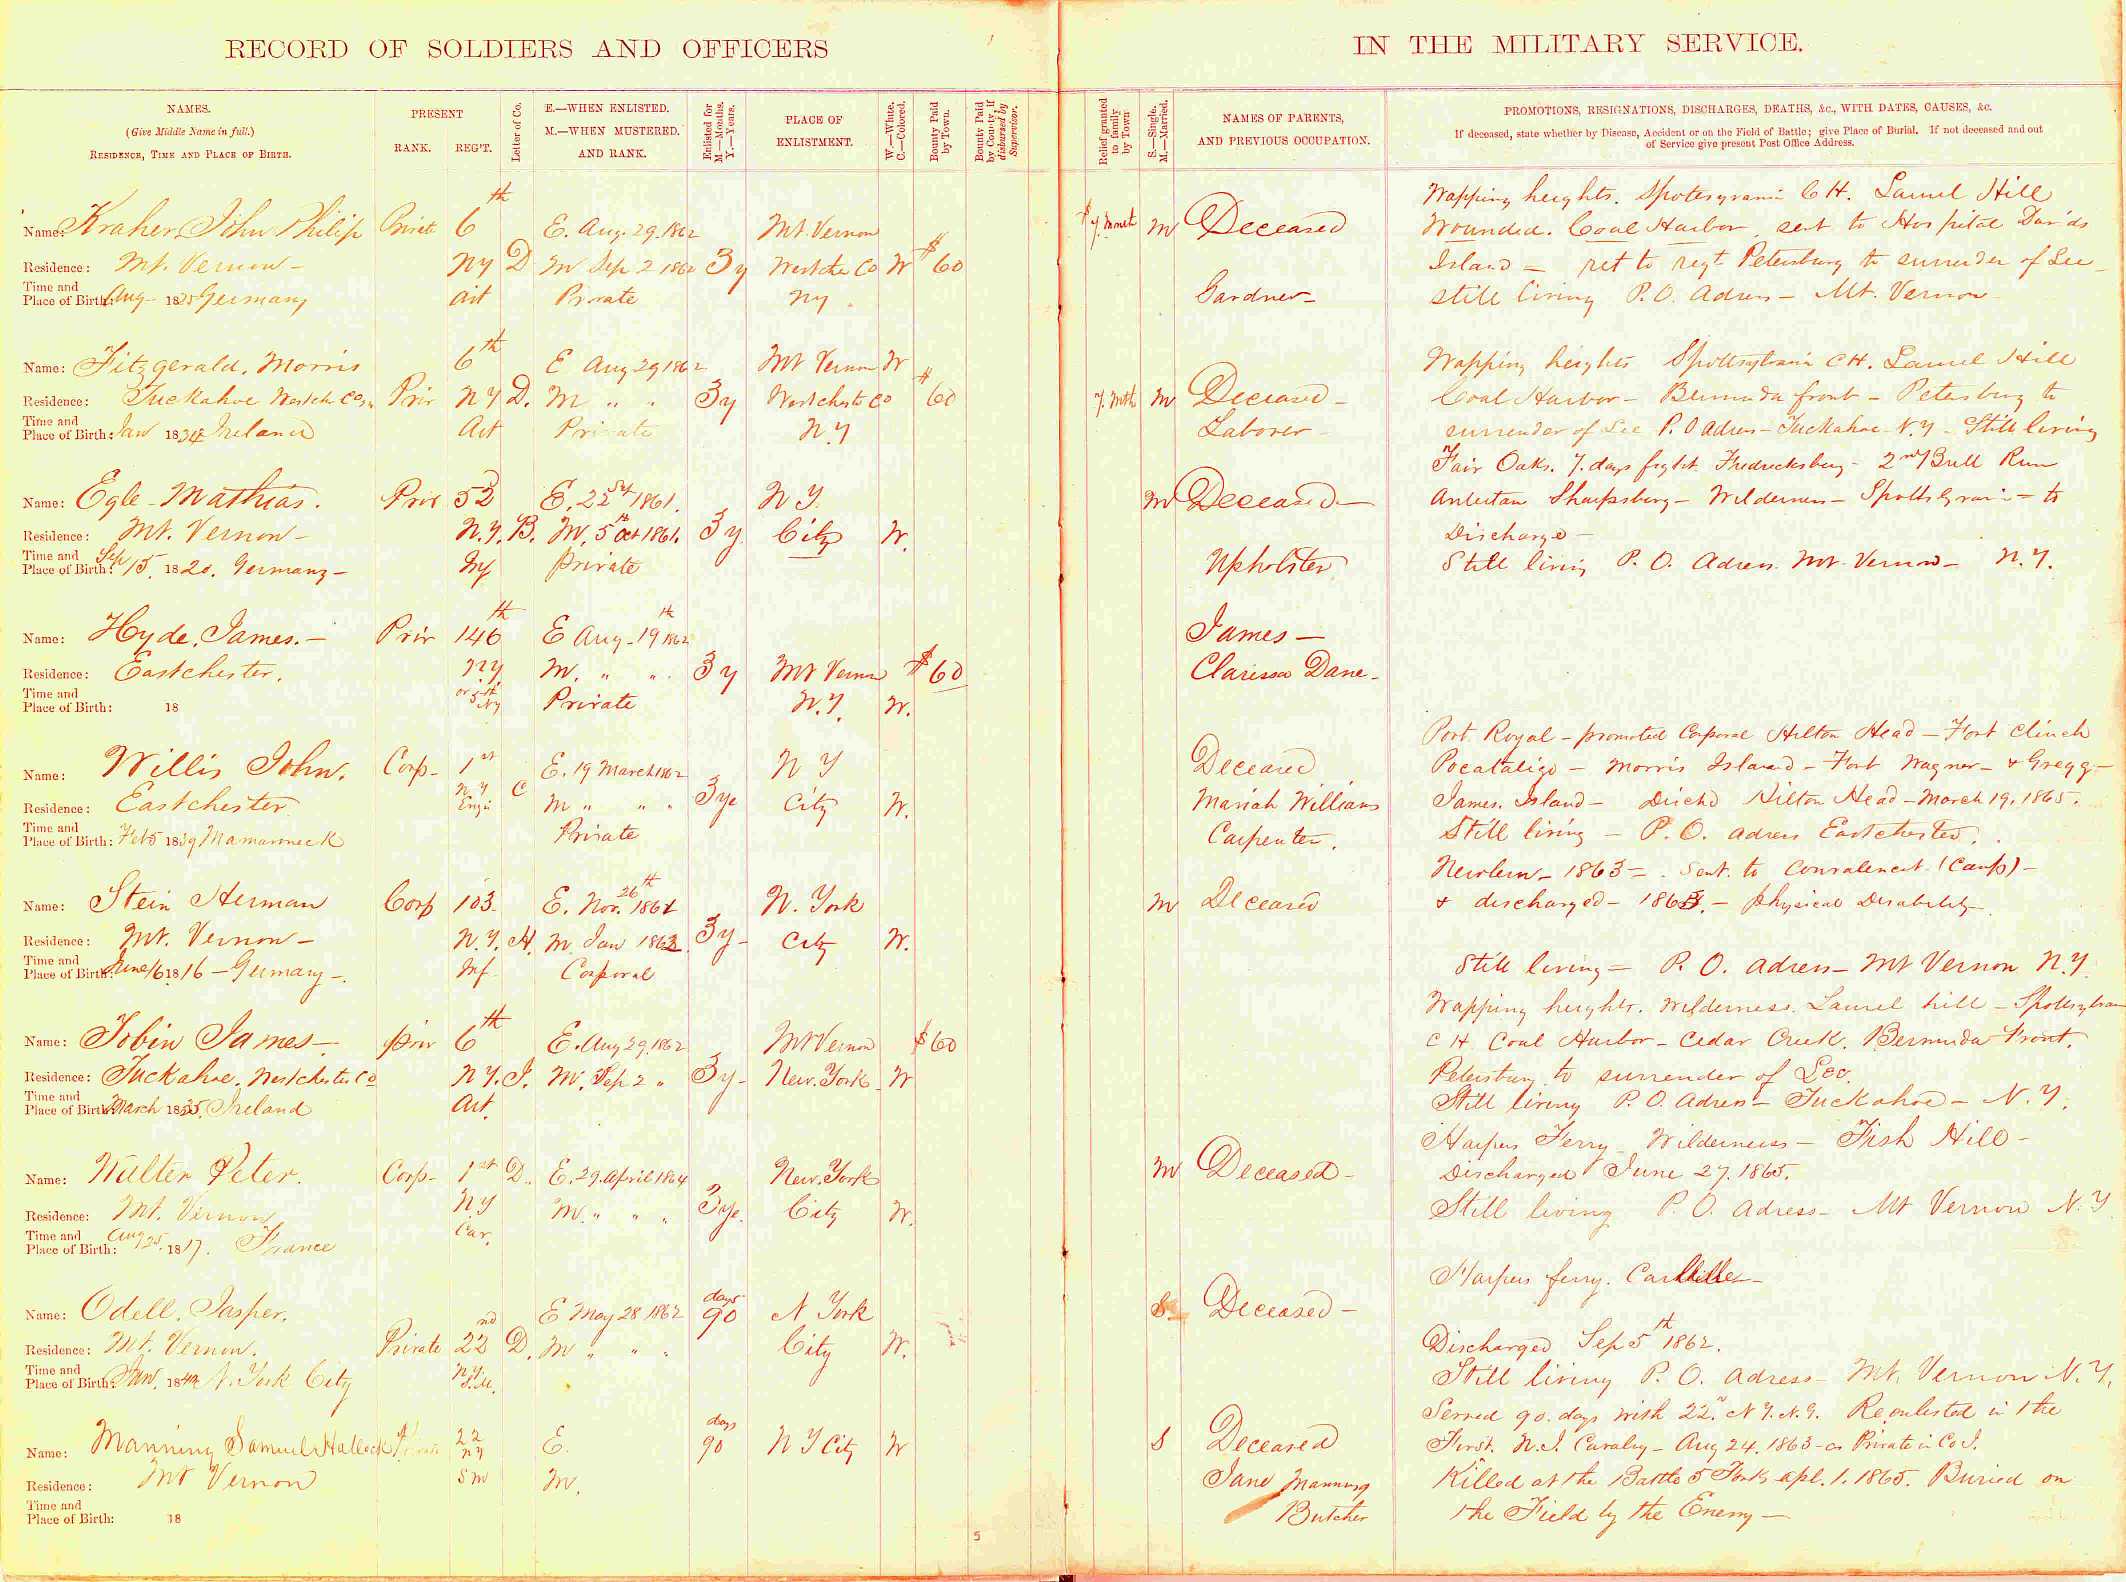 RECORD OF SOLDIERS AND OFFICERS
IN THE MILITARY SERVICE.
NAMES.
(Give Middle Name in full.)
RESIDENCE, TIME AND PLACE OF BIRTH.
PRESENT
RANK. REG'T.
Letter of Co.
E.—WHEN ENLISTED.
M.—WHEN MUSTERED.
AND RANK.
Enlisted for
M.—Months.
Y.—Years.
PLACE OF
ENLISTMENT.
W.—White.
C.—Colored.
Bounty Paid
by Town.
Bounty Paid
by County, if
disbursed by
Supervisor.
Relief granted
to family
by Town
S.—Single.
M.—Married.
NAMES OF PARENTS,
AND PREVIOUS OCCUPATION.
PROMOTIONS, RESIGNATIONS, DISCHARGES, DEATHS, &c., WITH DATES, CAUSES, &c.
If deceased, state whether by Disease, Accident or on the Field of Battle; give Place of Burial. If not deceased and out
of Service give present Post Office Address.
Name: Kraher John Philip Privt 6th E. Aug. 29. 1862 Mt. Vernon M Deceased
Residence: Mt. Vernon – NY D M Sep 2 1862 3y Westche Co W $60
Time and
Place of Birth: Aug – 1825 Germany Art Private NY. Gardner –
Wapping heights. Spotsyvania C H. Laurel Hill
Wounded. Coal Harbor, sent to Hospital Davids
Island – ret to regt Petersburg to surrender of Lee –
still living P.O. Adress – Mt. Vernon
Name: Fitzgerald, Morris 6th E Aug 29 1862 Mt Vernon W
Residence: Tuckahoe Westch Co. Priv NY D. M " " 3y Westchester Co $60 7. Mth M Deceased –
Time and
Place of Birth: Jan 1834 Ireland Art Private N.Y Laborer –
Wapping heights Spottsylvania CH. Laurel Hill
Coal Harbor – Bermuda front – Petersburg to
surrender of Lee P.O Adress – Tuckahoe N.Y – Still living
Name: Egle – Mathias. Priv 52 E. 22 1861. N Y. M Deceased –
Residence: Mt. Vernon – N.Y. B. M. 5th Oct 1861. 3y. City W.
Time and
Place of Birth: Sep 15. 1820. Germany – Inf Private Upholster
Fair Oaks. 7. days fight Fredricksburg – 2nd Bull Run
Antietam Sharpsburg – Wilderness – Spottsylvania – to
Discharge –
Still living P.O. Adress. Mt. Vernon – N.Y.
Name: Hyde, James. – Priv 146th E Aug – 19th 1862 James –
Residence: Eastchester. NY M. " " 3y Mt Vernon $60 Clarissa Dane –
Time and
Place of Birth: 18 or 5th NY Private N.Y. W.
Name: Willis John. Corp – 1st E. 19 March 1862 N Y Deceased
Residence: Eastchester N Y Engi C M " " " 3ye City W. Mariah Williams
Time and
Place of Birth: Feb 5 1839 Mamaroneck Private Carpenter.
Port Royal – promoted Corporal Hilton Head – Fort Clinch
Pocataligo – Morris Island – Fort Wagner – & Gregg –
James. Island – Disch'd Hilton Head – March 19, 1865.
Still living – P.O. adress Eastchester.
Name: Stein Herman Corp 103 E. Nov. 26th 1861 N. York M Deceased
Residence: Mt. Vernon – N.Y. H. M Jan 1862 3y – City W.
Time and
Place of Birth: June 16 1816 – Germany –. Inf. Corporal
Newbern – 1863 – . Sent. to Convalencent (Camp) –
& discharged – 1863. – physical Disability.
Still living – P.O. adress – Mt Vernon N.Y.
Name: Tobin James – priv 6th E. Aug 29. 1862 Mt Vernon $60
Residence: Tuckahoe. Westchester Co NY. I. M. Sep 2 " 3y – New. York W
Time and
Place of Birth: March 1835. Ireland Art.
Wapping heights. Wilderness. Laurel hill – Spottsylvan
C H. Coal Harbor – Cedar Creek. Bermuda Front.
Petersburg to surrender of Lee.
Still living P.O. Adress – Tuckahoe – N.Y.
Name: Walter Peter. Corp – 1st D. E. 29. April 1864 New. York M Deceased –
Residence: Mt. Vernon NY M. " " " 3ye. City W.
Time and
Place of Birth: Aug 25. 1817. France Cav.
Harpers Ferry – Wilderness – Fish Hill –
Discharged June 27. 1865.
Still living P.O. adress – Mt Vernon N.Y
Name: Odell, Jasper. E May 28 1862 days 90 N York S Deceased –
Residence: Mt. Vernon. Private 22nd D. M " " " City W.
Time and
Place of Birth: Jan. 18 N. York City N.Y. S.M.
Harpers ferry.
Discharged Sep 5th 1862.
Still living P.O. Adress – Mt. Vernon N.Y.
Name: Manning Samuel Hallock Private 22 NY E. days 90 N Y City W S Deceased
Residence: Mt Vernon S M M. Jane Manning
Time and
Place of Birth: 18 Butcher
Served 90. days with 22n N.Y.N.G. Reenlisted in the
First. N.J. Cavalry – Aug 24. 1863 – as Private in Co I.
Killed at the Battle 5 Forks apl. 1. 1865. Buried on
the Field by the Enemy –
5